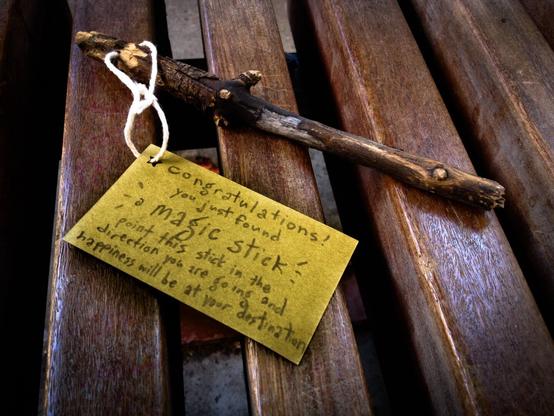 Congratulations!
you just found
a magic stick
point this stick in the
direction you are going and
happiness will be at your destination